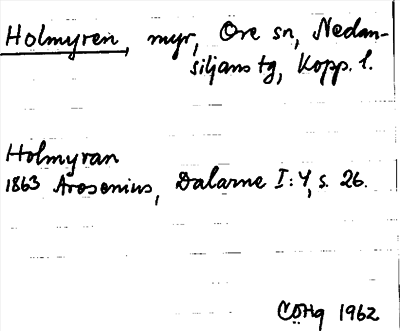 Holmyren, myr, Ore sn, Nedan-
siljans tg, Kopp. l.
Holmyran
1863 Arosenius, Dalarne I:4, s. 26.
CÖHg 1962